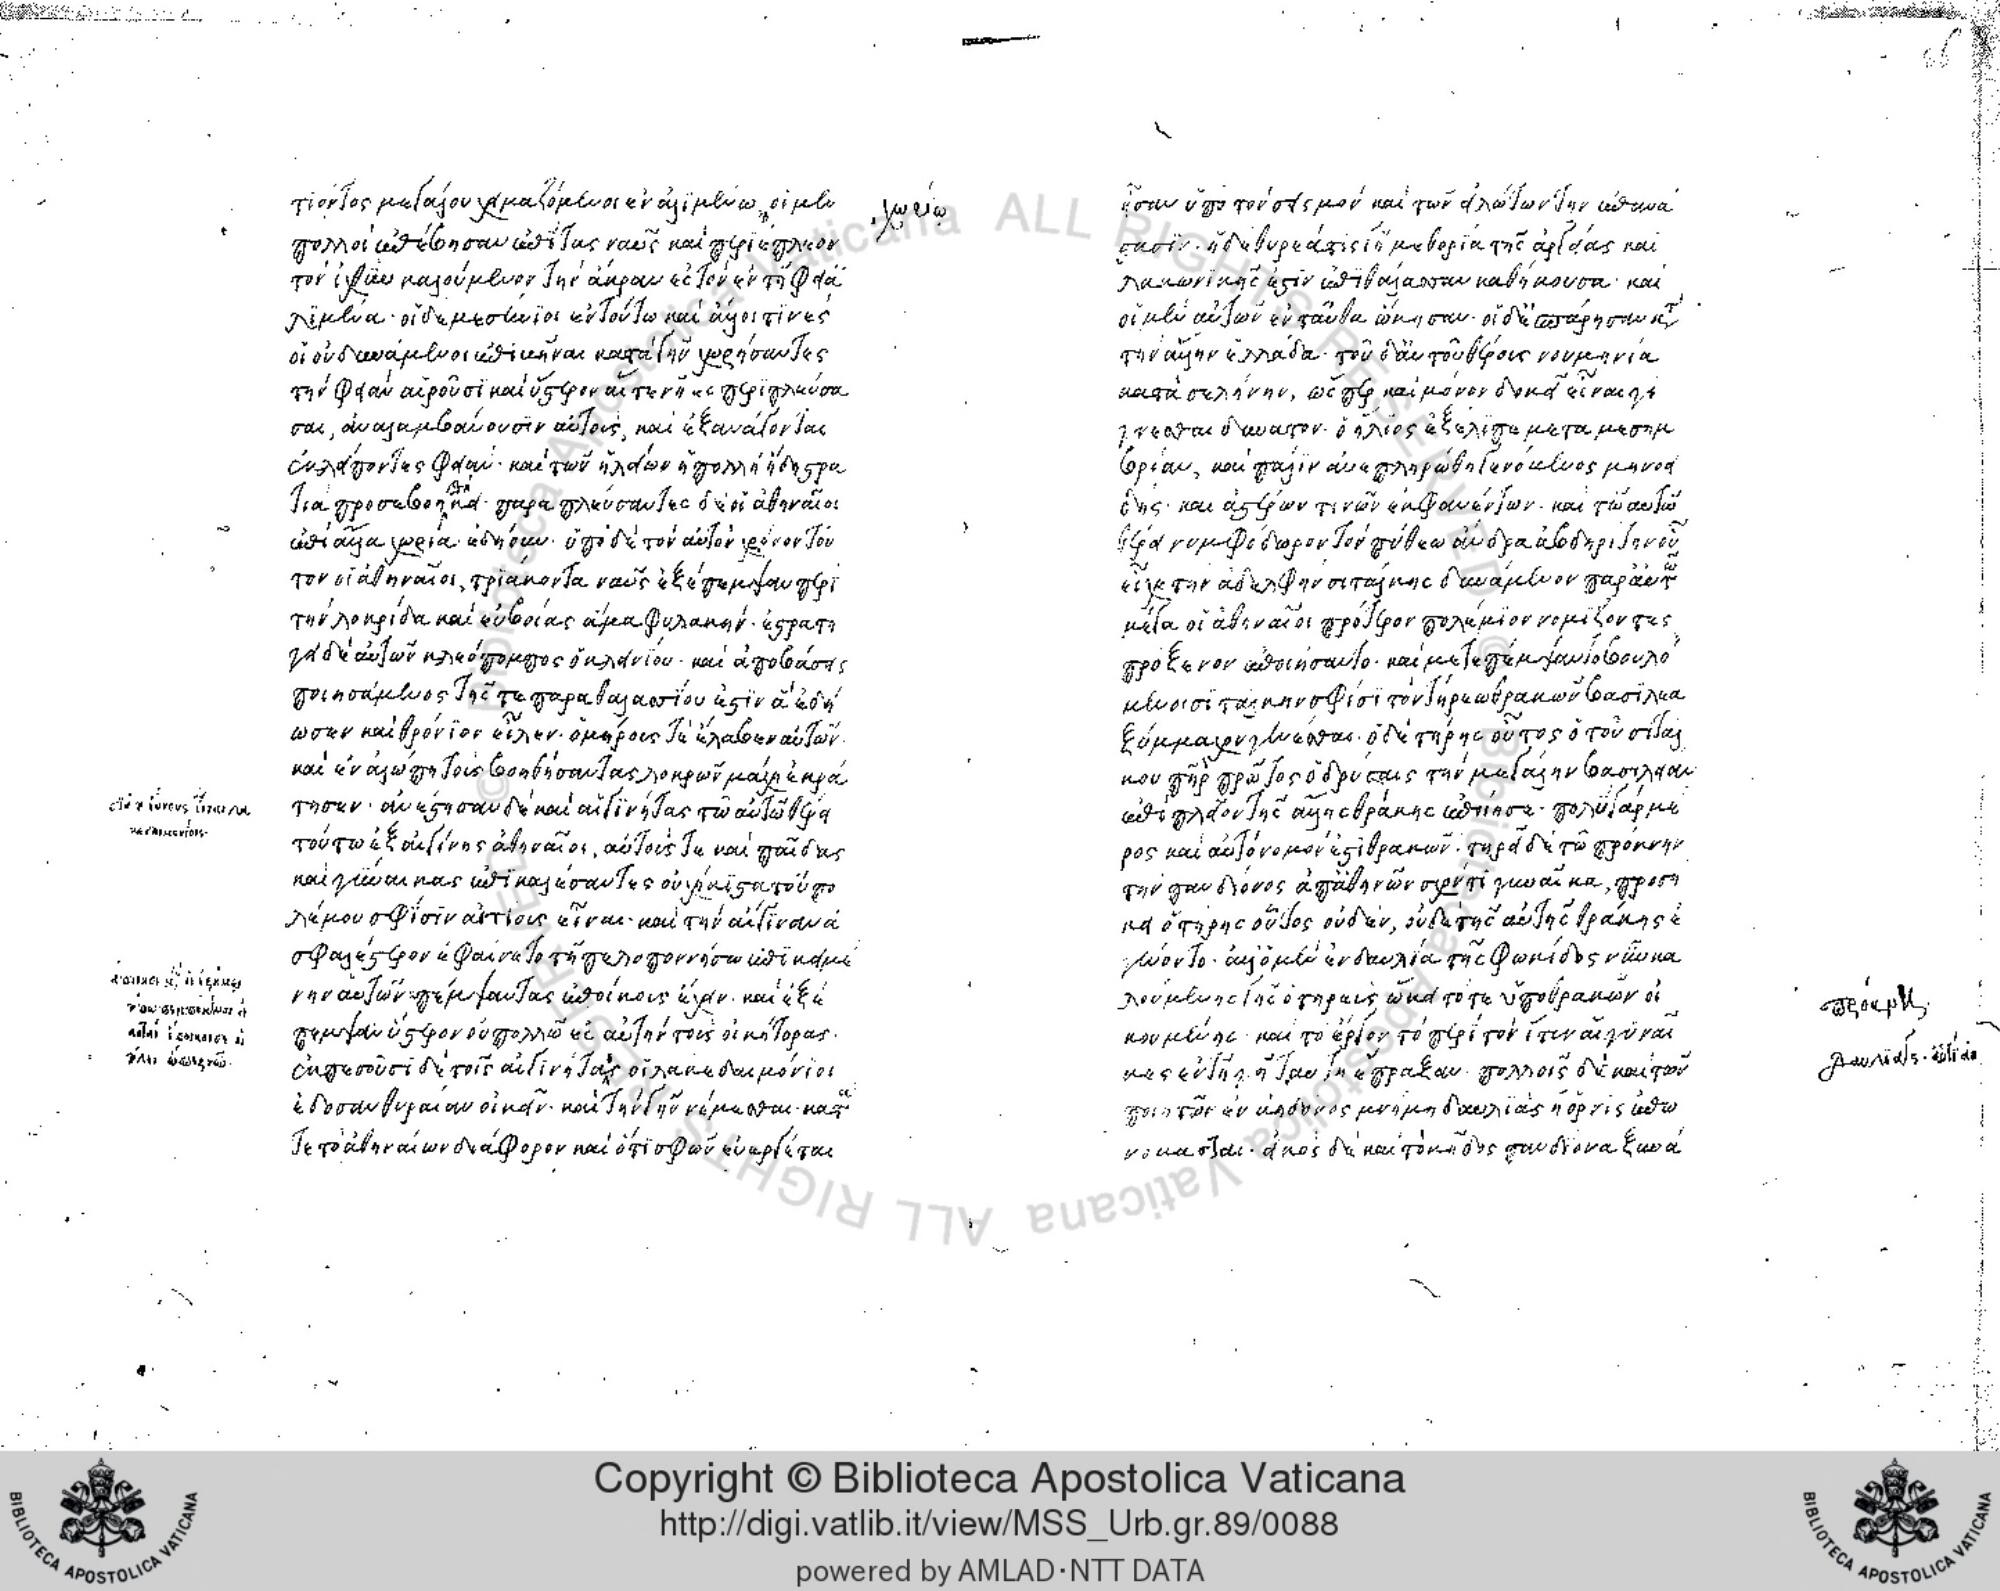 πιόντος μεγάλου χειμαζόμενοι ἐν ἀλιμένω, οἱ μὲν
πολλοὶ ἐπέβησαν ἐπὶ τὰς ναῦς καὶ περιέπλεον
τὸν ἰχθὺν καλούμενον τὴν ἄκραν ἐς τὸν ἐν τῆ φειᾶ
λιμένα· οἱ δὲ μεσσήνιοι ἐν τούτω καὶ ἄλλοι τινὲς
οἱ οὐ δυνάμενοι ἐπιβῆναι κατὰ γῆν χωρήσαντες
τὴν φειὰν αἱροῦσι καὶ ὕστερον αἵ τε νῆες περιπλεύσα
σαι, ἀναλαμβάνουσιν αὐτοὺς, καὶ ἐξανάγονται
ἐκλιπόντες φειάν· καὶ τῶν ἠλείων ἡ πολλὴ ἤδη στρα
τιὰ προσεβοηθήκει· παραπλεύσαντες δὲ οἱ ἀθηναῖοι
ἐπὶ ἄλλα χωρία ἐδήουν· ὑπὸ δὲ τὸν αὐτὸν χρόνον τοῦ
τον οἱ ἀθηναῖοι, τριάκοντα ναῦς ἐξέπεμψαν περὶ
τὴν λοκρίδα καὶ εὐβοίας ἅμα φυλακήν· ἐστρατή
γει δὲ αὐτῶν κλεόπομπος ὁ κλεινίου· καὶ ἀποβάσεις
ποιησάμενος τῆς τε παραθαλασσίου ἔστιν ἃ ἐδή
ωσεν καὶ θρόνιον εἷλεν· ὁμήρους τε ἔλαβεν αὐτῶν·
καὶ ἐν ἀλόπη τοὺς βοηθήσαντας λοκρῶν μάχη ἐκρά
τησεν· ἀνέστησαν δὲ καὶ αἰγινήτας τῶ αὐτῶ θέρει
τούτω ἐξ αἰγίνης ἀθηναῖοι, αὐτούς τε καὶ παῖδας
καὶ γυναῖκας ἐπικαλέσαντες οὐχ ἥκιστα τοῦ πο
λέμου σφίσιν αἰτίους εἶναι· καὶ τὴν αἴγιναν ἀ
σφαλέστερον ἐφαίνετο τῆ πελοποννήσω ἐπικειμέ
νην αὑτῶν πέμψαντας ἐποίκους ἔχειν· καὶ ἐξέ
πεμψαν ὕστερον οὐ πολλῶ ἐς αὐτὴν τοὺς οἰκήτορας·
ἐκπεσοῦσι δὲ τοῖς αἰγινήταις οἱ λακεδαιμόνιοι
ἔδοσαν θυρέαν οἰκεῖν· καὶ τὴν γῆν νέμεσθαι· κατά
τε τὸ ἀθηναίων διάφορον καὶ ὅτι σφῶν εὐεργέται
χωρίω
ἦσαν ὑπὸ τὸν σεισμὸν καὶ τῶν εἱλώτων τὴν ἐπανά
στασιν· ἡ δὲ θυρεᾶτις γῆ μεθορία τῆς ἀργείας καὶ
λακωνικῆς ἐστὶν ἐπὶ θάλασσαν καθήκουσα· καὶ
οἱ μὲν αὐτῶν ἐνταῦθα ὤκησαν· οἱ δὲ ἐσπάρησαν κατὰ
τὴν ἄλλην ἑλλάδα· τοῦ δ' αὐτοῦ θέρους νουμηνία
κατὰ σελήνην, ὥσπερ καὶ μόνον δοκεῖ εἶναι γί
γνεσθαι δυνατόν· ὁ ἥλιος ἐξέλιπε μετὰ μεσημ
βρίαν, καὶ πάλιν ἀνεπληρώθη γενόμενος μηνοει
δής· καὶ ἀστέρων τινῶν ἐκφανέντων· καὶ τῶ αὐτῶ
θέρει νυμφόδωρον τὸν πύθεω ἄνδρα ἀβδηρίτην οὗ
εἶχε τὴν ἀδελφὴν σιτάλκης δυνάμενον παρ' αὐτῶ
μέγα οἱ ἀθηναῖοι πρότερον πολέμιον νομίζοντες
πρόξενον ἐποιήσαντο· καὶ μετεπέμψαντο βουλό
μενοι σιτάλκην σφίσι τὸν τήρεω θρακῶν βασιλέα
ξύμμαχον γενέσθαι· ὁ δὲ τήρης οὗτος ὁ τοῦ σιτάλ
κου πὴρ πρῶτος ὀδρύσαις τὴν μεγάλην βασιλείαν
ἐπὶ πλεῖον τῆς ἄλλης θράκης ἐποίησε· πολὺ γὰρ μέ
ρος καὶ αὐτόνομόν ἐστι θρακῶν· τηρεῖ δὲ τῶ πρόκνην
τὴν πανδίονος ἀπ' ἀθηνῶν σχόντι γυναῖκα, προσή
κει ὁ τήρης οὗτος οὐδέν, οὐδὲ τῆς αὐτῆς θράκης ἐ
γένοντο· ἀλλ' ὁ μὲν ἐν δαυλία τῆς φωκίδος νῦν κα
λουμένης γῆς ὁ τηρεὺς ὤκει τότε ὑπὸ θρακῶν οἰ
κουμένης· καὶ τὸ ἔργον τὸ περὶ τὸν ἴτυν αἱ γυναῖ
κες ἐν τῆ γῆ ταύτη ἔπραξαν· πολλοῖς δὲ καὶ τῶν
ποιητῶν ἐν ἀηδόνος μνήμη δαυλιὰς ἡ ὄρνις ἐπω
νόμασται· εἰκὸς δὲ καὶ τὸ κῆδος πανδίονα ξυνά
πρόκνης